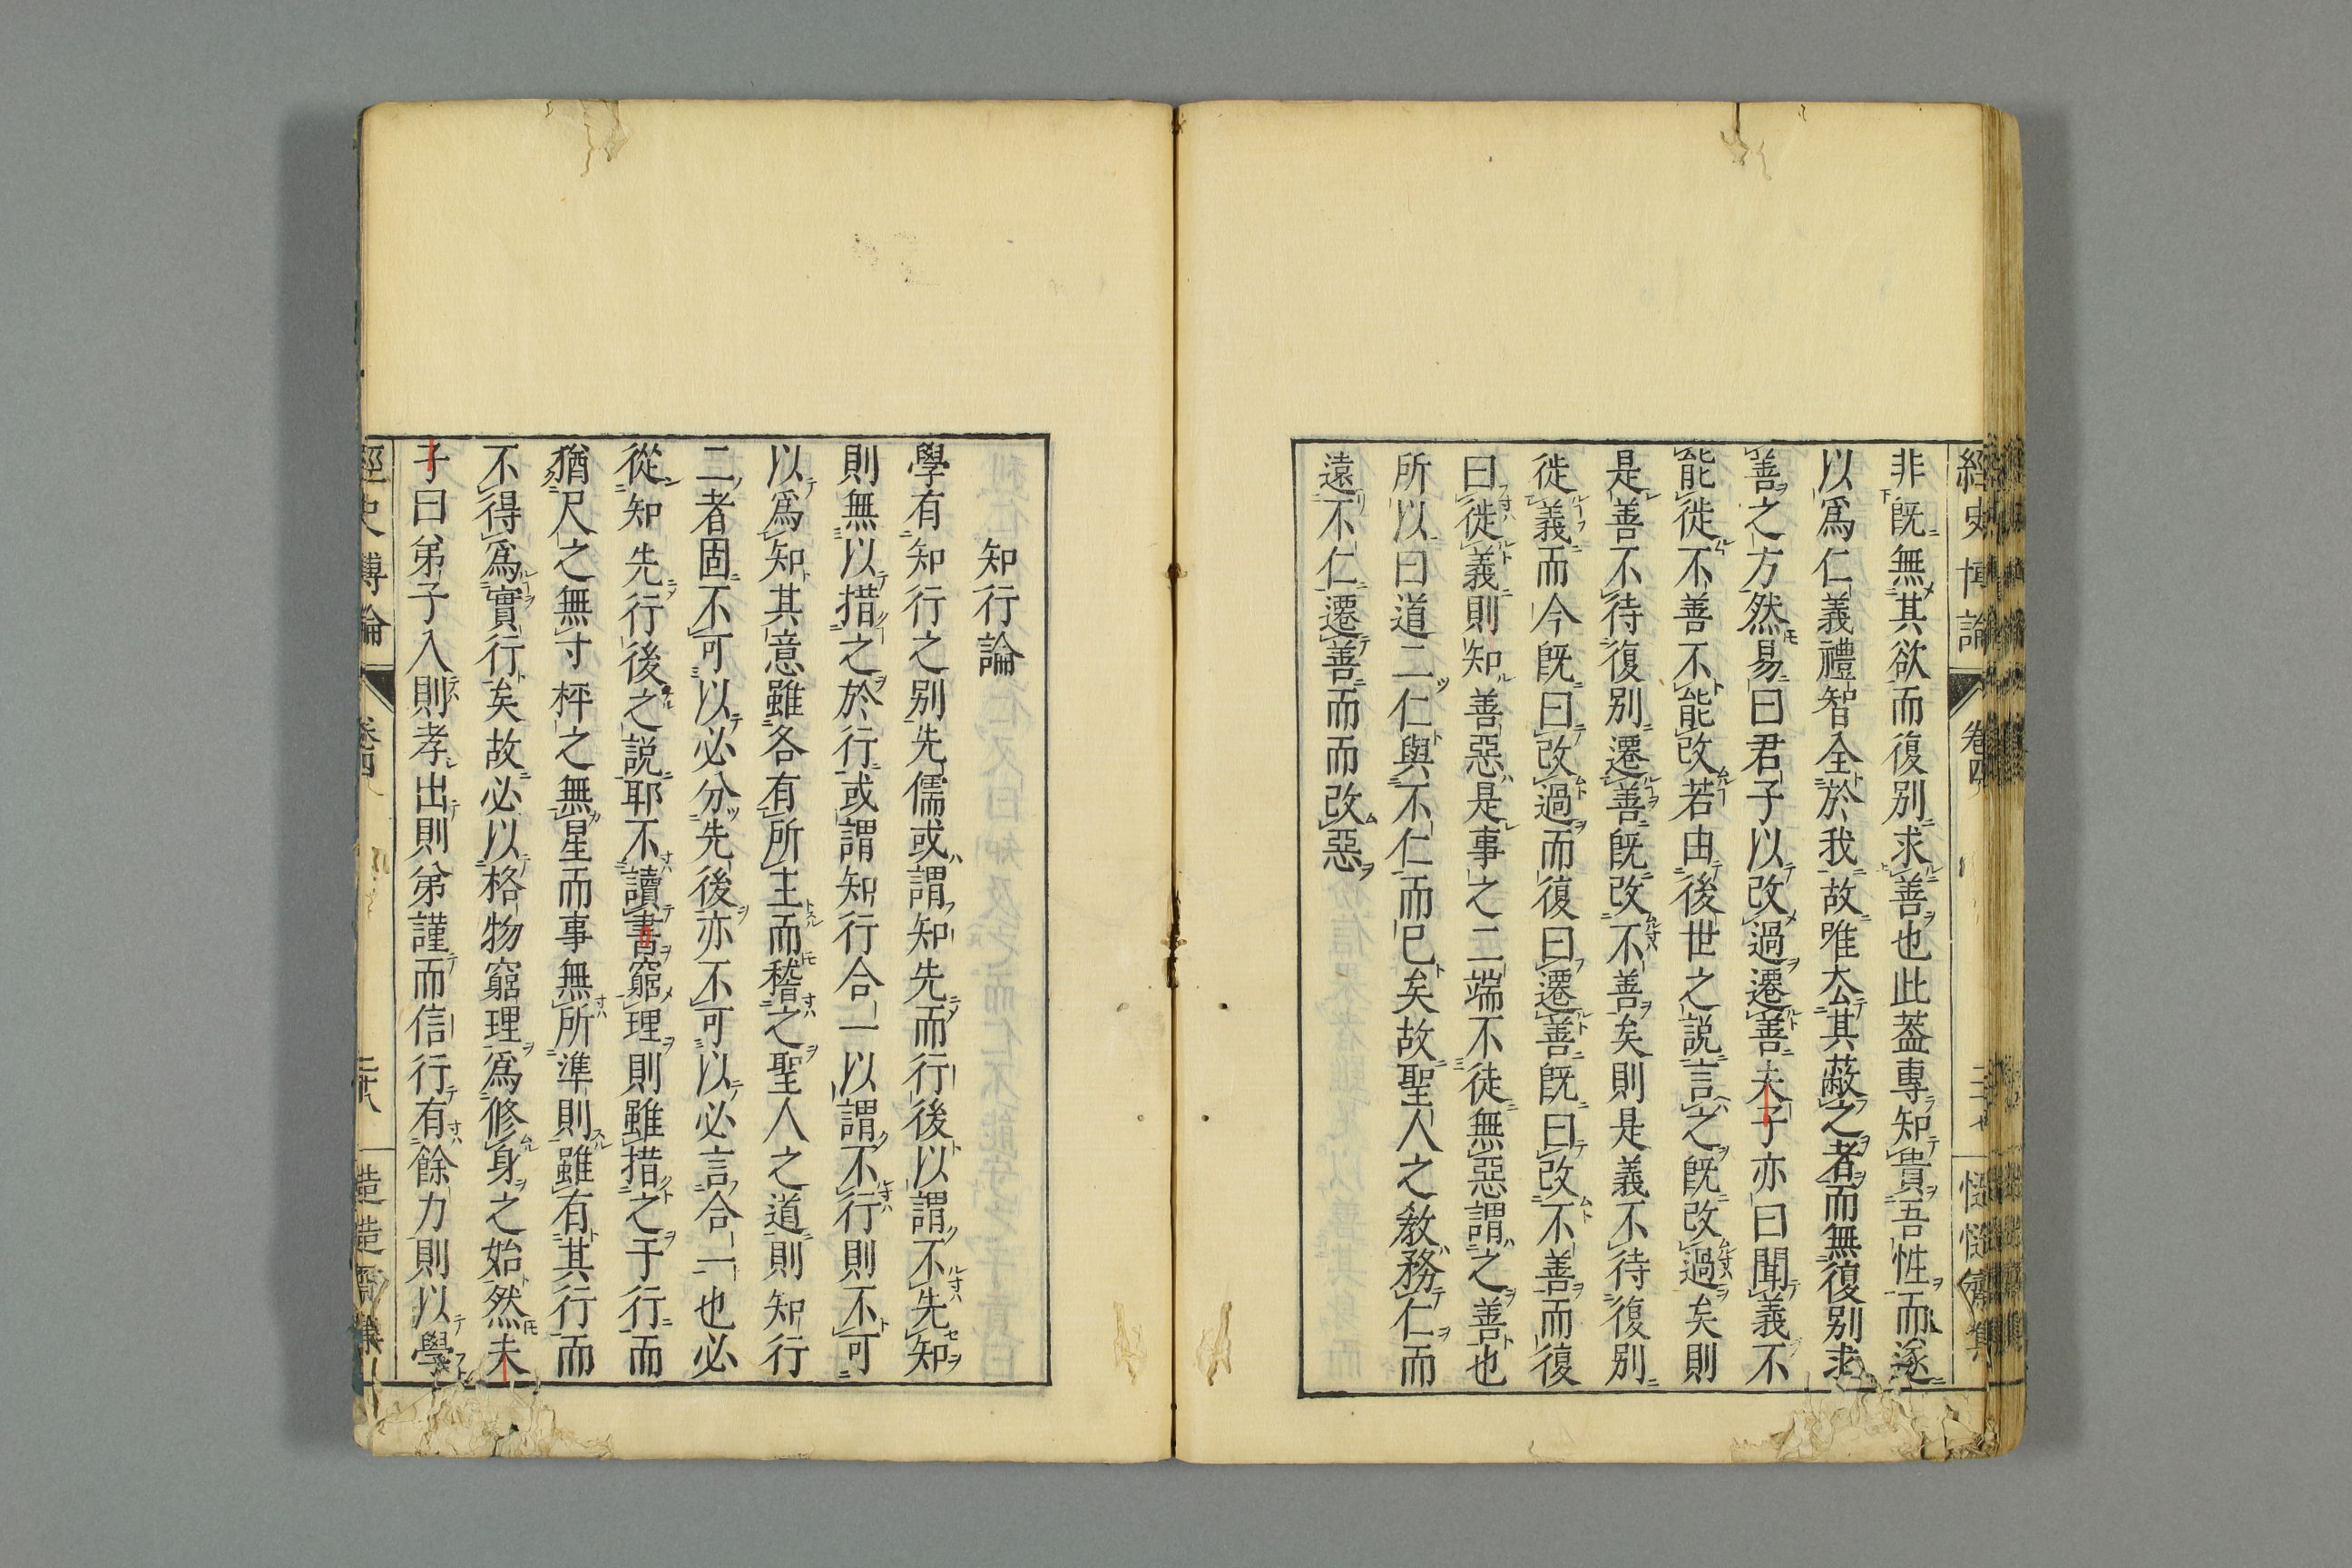 經史博論 卷四
非既無其欲而復別求善也此蓋專知貴吾性而逐
以爲仁義禮智全於我故唯去其蔽之者而無復別求
善之方然易曰君子以改過遷善夫子亦曰聞義不
能徙不善不能改若由後世之説言之既改過矣則
是善不待復別遷善既改不善矣則是義不待復別
徙義而今既曰改過而復曰遷善既曰改不善而復
曰徙義則知善惡是事之二端不徒無惡謂之善也
所以曰道二仁與不仁而已矣故聖人之教務仁而
遠不仁遷善而而改惡
知行論
學有知行之别先儒或謂知先而行後以謂不先知
則無以措之於行或謂知行合一以謂不行則不可
以爲知其意雖各有所主而稽之聖人之道則知行
二者固不可以必分先後亦不可以必言合一也必
從知先行後之説耶不讀書窮理則雖措之于行而
猶尺之無寸枰之無星而事無所準則雖有其行而
不得爲實行矣故必以格物窮理爲修身之始然夫
子曰弟子入則孝出則弟謹而信行有餘力則以學
經史博論 卷四 二十八